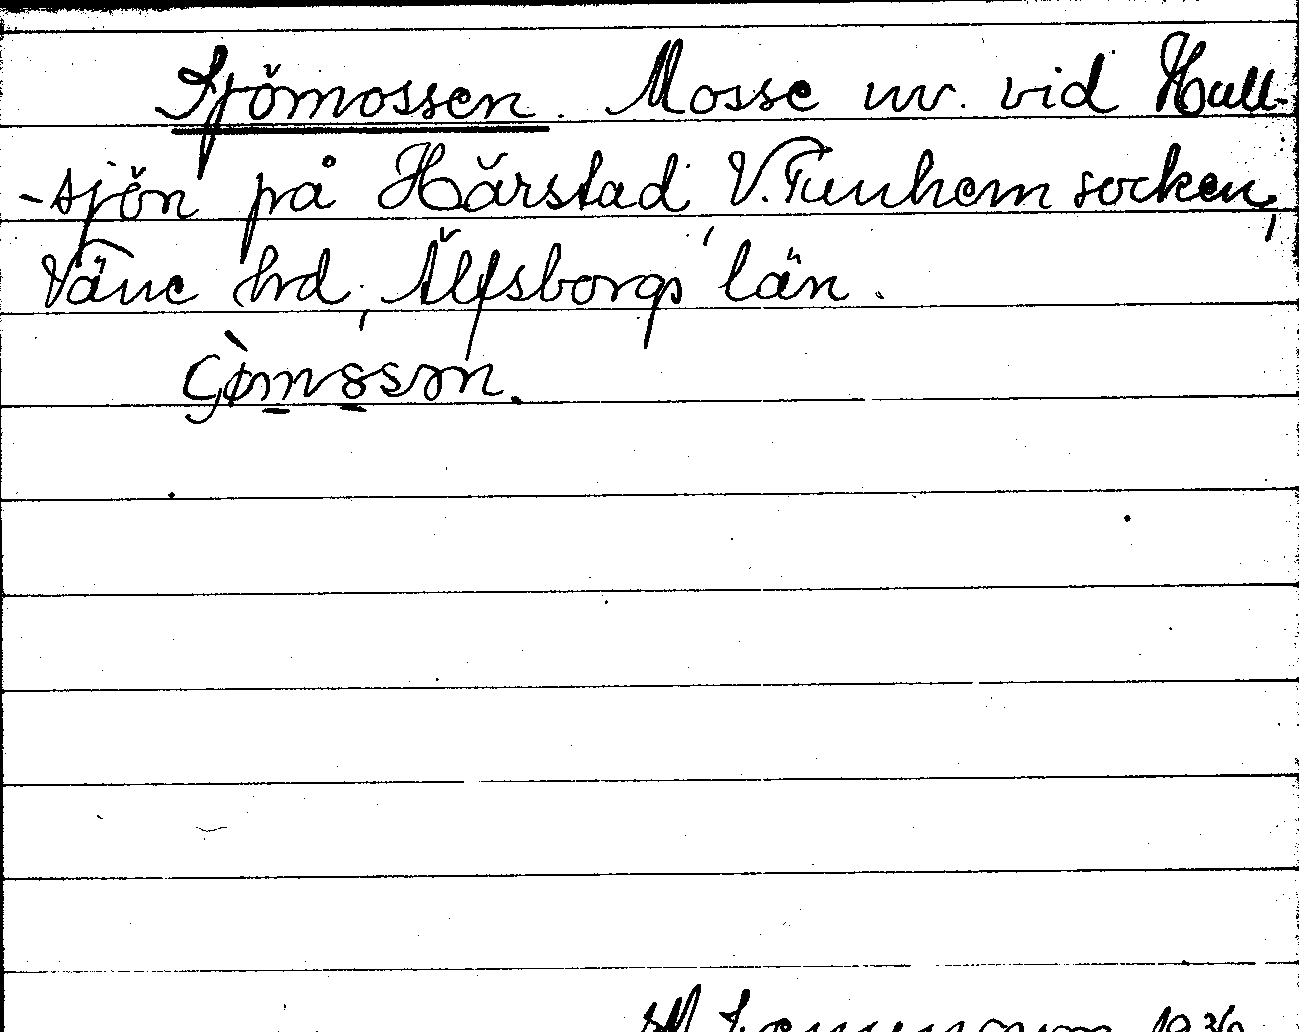 Sjömossen. Mosse nv. vid Hull-
-sjön på Härstad, V. Tunhem socken,
Väne hrd, Älfsborgs län.
1936